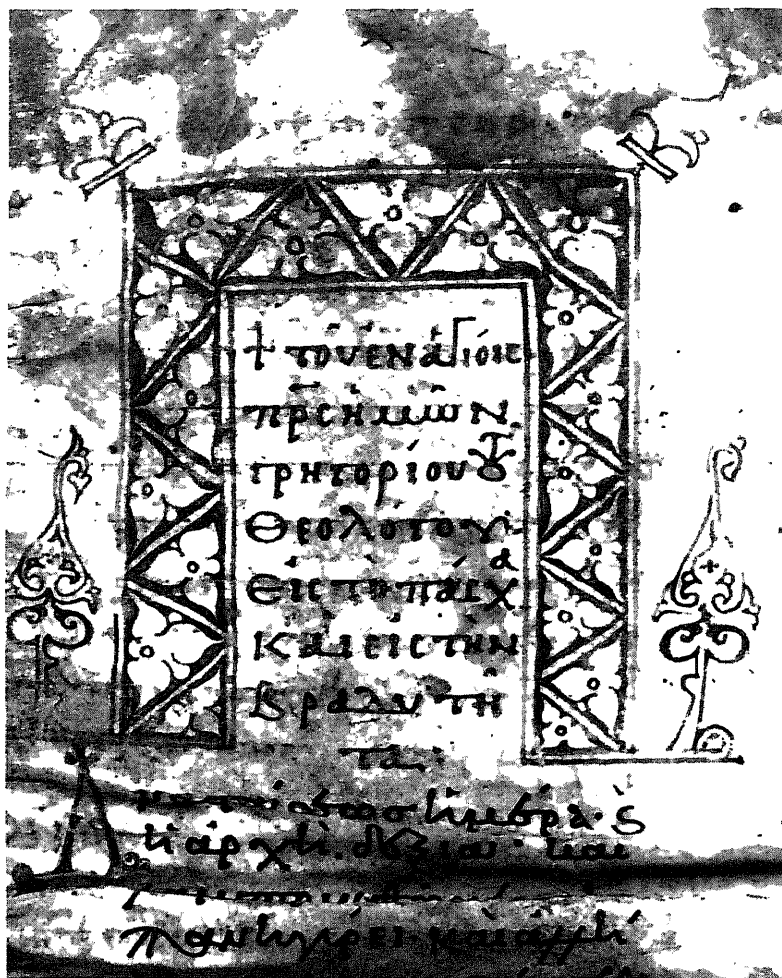 † τοῦ ἐν ἁγίοις
πρς ἡμῶν
γρηγορίου τοῦ
θεολόγου·
εἰς τὸ πάσχα
καὶ εἰς τὴν
βραδυτῆ
τα·
ἡμέρα· καὶ
ἡ ἀρχὴ δεξιὰ· καὶ
πανηγύρει· καὶ ἀλλή